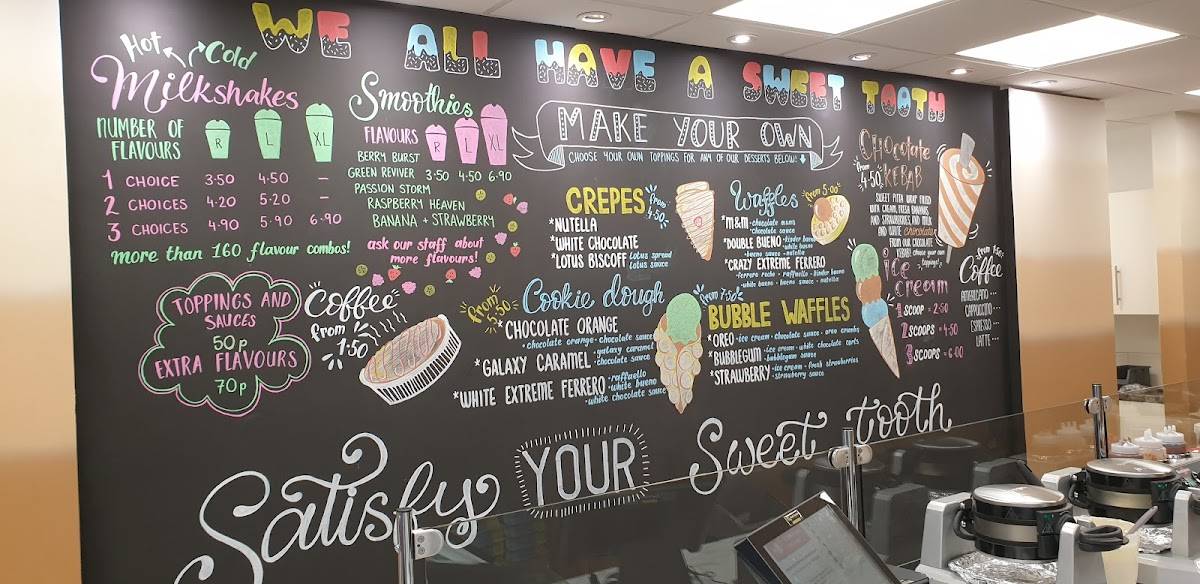 WE ALL HAVE A SWEET TOOTH
Hot Cold
Milkshakes
NUMBER OF FLAVOURS R L XL
1 CHOICE 3·50 4·50 –
2 CHOICES 4·20 5·20 –
3 CHOICES 4·90 5·90 6·90
more than 160 flavour combos!
Smoothies
FLAVOURS R L XL
BERRY BURST
GREEN REVIVER 3·50 4·50 6·90
PASSION STORM
RASPBERRY HEAVEN
BANANA + STRAWBERRY
ask our staff about
more flavours!
TOPPINGS AND
SAUCES
50p
EXTRA FLAVOURS
70p
Coffee
from
1·50
MAKE YOUR OWN
CHOOSE YOUR OWN TOPPINGS FOR ANY OF OUR DESSERTS BELOW!
CREPES from 4·50
*NUTELLA
*WHITE CHOCOLATE
*LOTUS BISCOFF Lotus spread
Lotus sauce
Waffles from 5·00
*M&M ·chocolate m&ms
·chocolate sauce
*DOUBLE BUENO ·kinder bueno
·white bueno
·bueno sauce ·nutella
*CRAZY EXTREME FERRERO
·ferrero roche ·raffaello ·kinder bueno
·white bueno ·bueno sauce ·nutella
from 5·50
Cookie dough
*CHOCOLATE ORANGE
·chocolate orange ·chocolate sauce
*GALAXY CARAMEL ·galaxy caramel
·chocolate sauce
*WHITE EXTREME FERRERO ·raffaello
·white bueno
·white chocolate sauce
from 7·50
BUBBLE WAFFLES
*OREO ·ice cream ·chocolate sauce ·oreo crumbs
*BUBBLEGUM ·ice cream ·white chocolate
·bubblegum sauce
*STRAWBERRY ·ice cream ·fresh strawberries
·strawberry sauce
CHOCOLATE
from 4·50 KEBAB
SWEET PITTA WRAP FILLED
WITH CREAM, FRESH BANANAS,
AND STRAWBERRIES AND MILK
AND WHITE chocolate
FROM OUR CHOCOLATE
KEBAB! choose your own
toppings!
ice
cream
1 SCOOP - 2·50
2 SCOOPS - 4·50
3 SCOOPS - 6·00
from
Coffee
AMERICANO
CAPPUCCINO
ESPRESSO
LATTE
Satisfy YOUR Sweet tooth